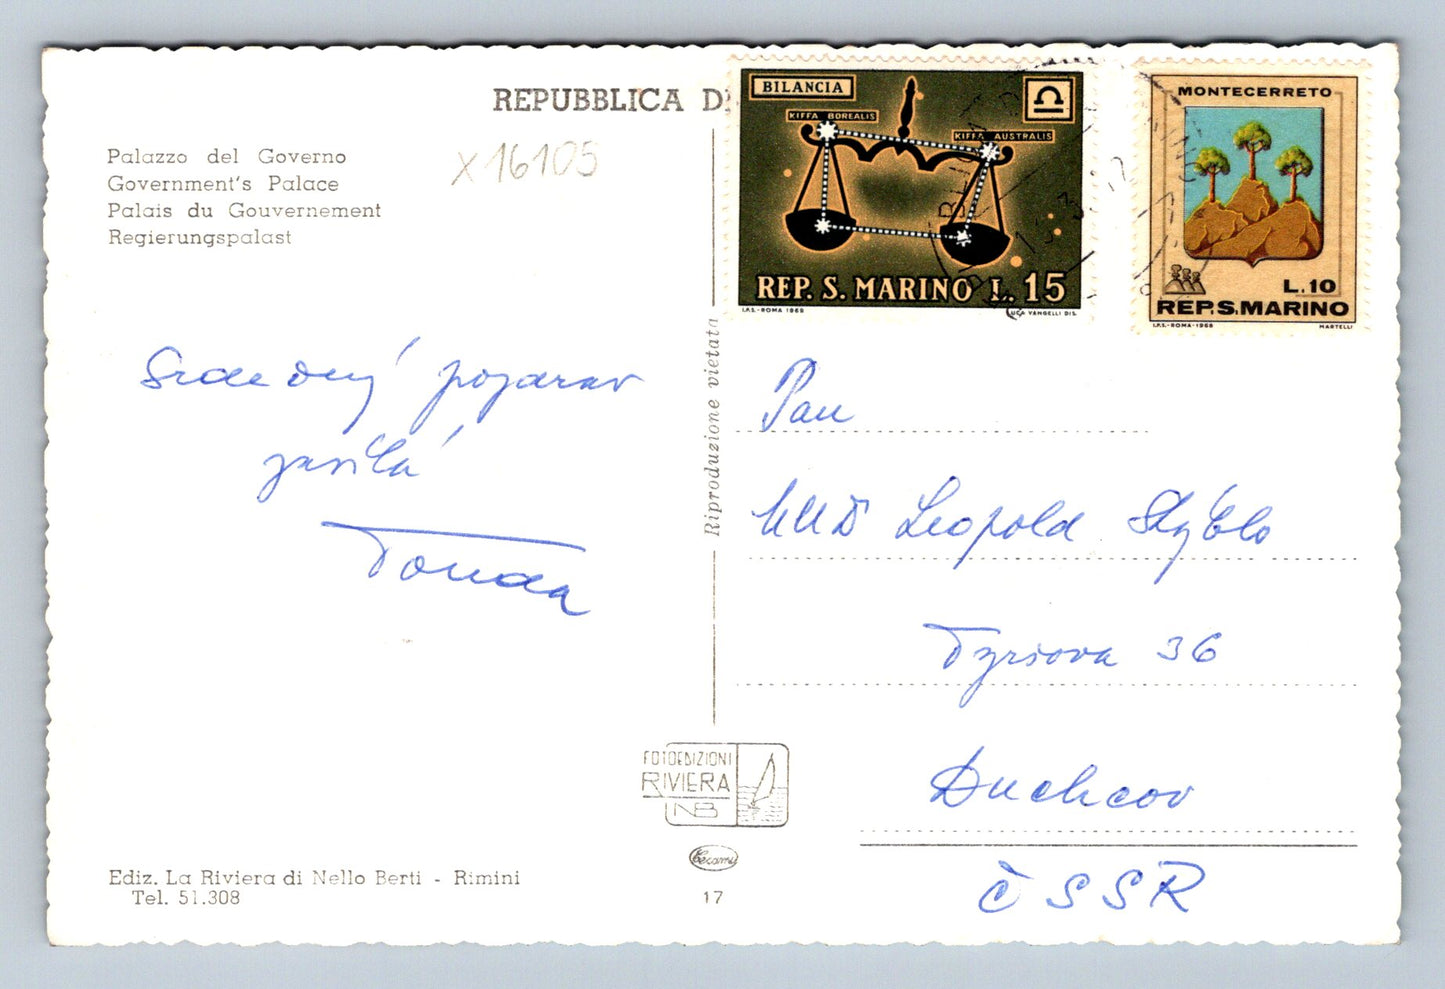 REPUBBLICA D
Palazzo del Governo
Government's Palace
Palais du Gouvernement
Regierungspalast
X16105
Srdečný pozdrav
zasílá
Tonda
Riproduzione vietata
BILANCIA
KIFFA BOREALIS
KIFFA AUSTRALIS
REP. S. MARINO L. 15
I.P.S.-ROMA 1969
LUCA VANGELLI DIS.
MONTECERRETO
L.10
REP.S.MARINO
I.P.S.-ROMA-1968
MARTELLI
Pan
MUDr Leopold
Tyršova 36
Duchcov
ČSSR
FOTOEDIZIONI
RIVIERA
NB
Ediz. La Riviera di Nello Berti - Rimini
Tel. 51.308
17